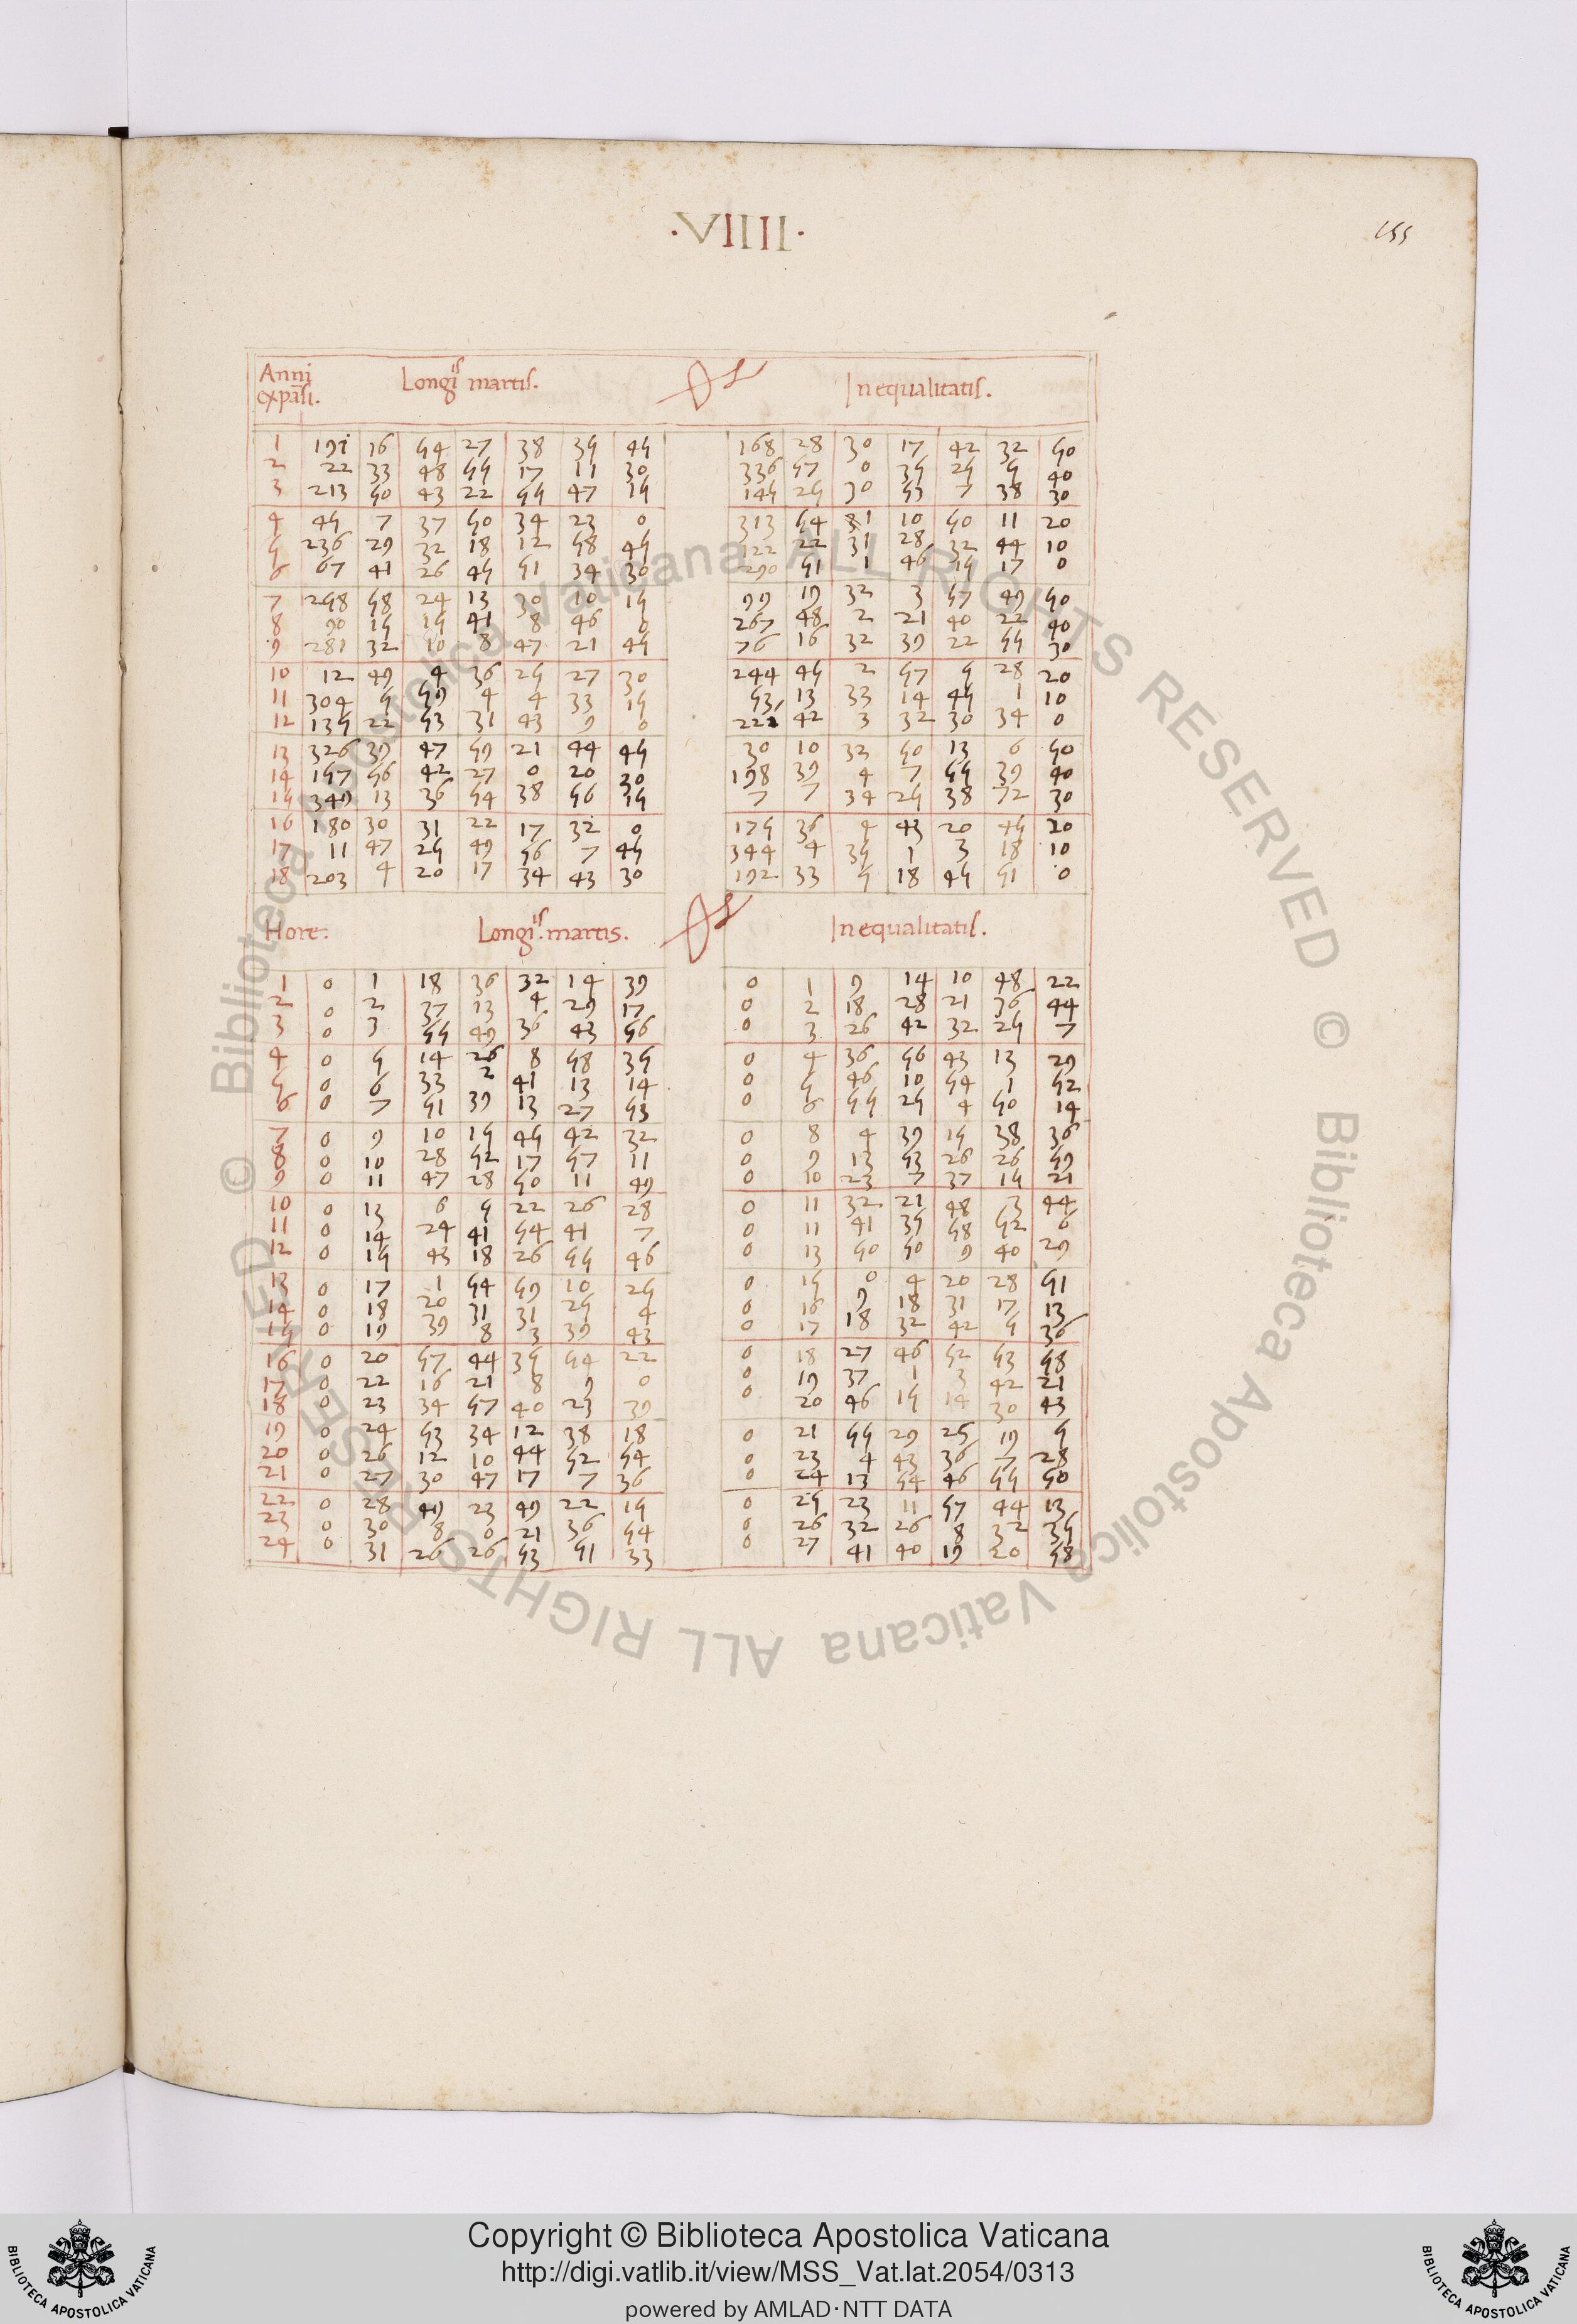 ·VIIII·
155
Anni expāsi. Longi^is martis. Inequalitatis.
1 191 16 54 27 38 35 45 168 28 30 17 42 32 50
2 22 33 48 55 17 11 30 336 57 0 35 25 5 40
3 213 50 43 22 55 47 15 145 25 30 53 7 38 30
4 45 7 37 50 34 23 0 313 54 1 10 50 11 20
5 236 29 32 18 12 58 45 122 22 31 28 32 44 10
6 67 41 26 45 51 34 30 290 51 1 46 15 17 0
7 258 58 24 13 30 10 15 99 19 32 3 57 49 50
8 90 15 15 41 8 46 0 267 48 2 21 40 22 40
9 281 32 10 8 47 21 45 76 16 32 39 22 55 30
10 12 49 4 36 25 27 30 244 45 2 57 5 28 20
11 304 5 59 4 4 33 15 53 13 33 14 45 1 10
12 135 22 53 31 43 9 0 222 42 3 32 30 34 0
13 326 39 47 59 21 44 45 30 10 33 50 13 6 50
14 157 56 42 27 0 20 30 198 39 4 7 55 39 40
15 349 13 36 54 38 56 15 7 7 34 25 38 72 30
16 180 30 31 22 17 32 0 175 36 4 43 20 45 20
17 11 47 25 49 56 7 45 344 4 35 1 3 18 10
18 203 4 20 17 34 43 30 192 33 5 18 45 51 0
Hore. Longi^is. martis. Inequalitatis.
1 0 1 18 36 32 14 39 0 1 9 14 10 48 22
2 0 2 37 13 4 29 17 0 2 18 28 21 36 44
3 0 3 55 49 36 43 56 0 3 26 42 32 25 7
4 0 5 14 26 8 58 35 0 4 36 56 43 13 29
5 0 6 33 2 41 13 14 0 5 46 10 54 1 52
6 0 7 51 39 13 27 53 0 6 55 25 4 50 14
7 0 9 10 15 45 42 32 0 8 4 39 15 38 36
8 0 10 28 52 17 57 11 0 9 13 53 26 26 59
9 0 11 47 28 50 11 49 0 10 23 7 37 15 21
10 0 13 6 5 22 26 28 0 11 32 21 48 3 44
11 0 14 24 41 54 41 7 0 11 41 35 58 52 6
12 0 15 43 18 26 55 46 0 13 50 50 9 40 29
13 0 17 1 54 59 10 25 0 15 0 4 20 28 51
14 0 18 20 31 31 25 4 0 16 9 18 31 17 13
15 0 19 39 8 3 39 43 0 17 18 32 42 5 36
16 0 20 57 44 35 54 22 0 18 27 46 52 53 58
17 0 22 16 21 8 9 0 0 19 37 1 3 42 21
18 0 23 34 57 40 23 39 0 20 46 15 14 30 43
19 0 24 53 34 12 38 18 0 21 55 29 25 19 5
20 0 26 12 10 44 52 54 0 23 4 43 36 7 28
21 0 27 30 47 17 7 36 0 24 13 54 46 55 50
22 0 28 49 23 49 22 15 0 25 23 11 57 44 13
23 0 30 8 0 21 36 54 0 26 32 26 8 32 35
24 0 31 26 26 53 51 33 0 27 41 40 19 20 58
© Biblioteca Apostolica Vaticana ALL RIGHTS RESERVED © Biblioteca Apostolica Vaticana ALL RIGHTS RESERVED
Copyright © Biblioteca Apostolica Vaticana
http://digi.vatlib.it/view/MSS_Vat.lat.2054/0313
powered by AMLAD·NTT DATA
BIBLIOTECA APOSTOLICA VATICANA
BIBLIOTECA APOSTOLICA VATICANA